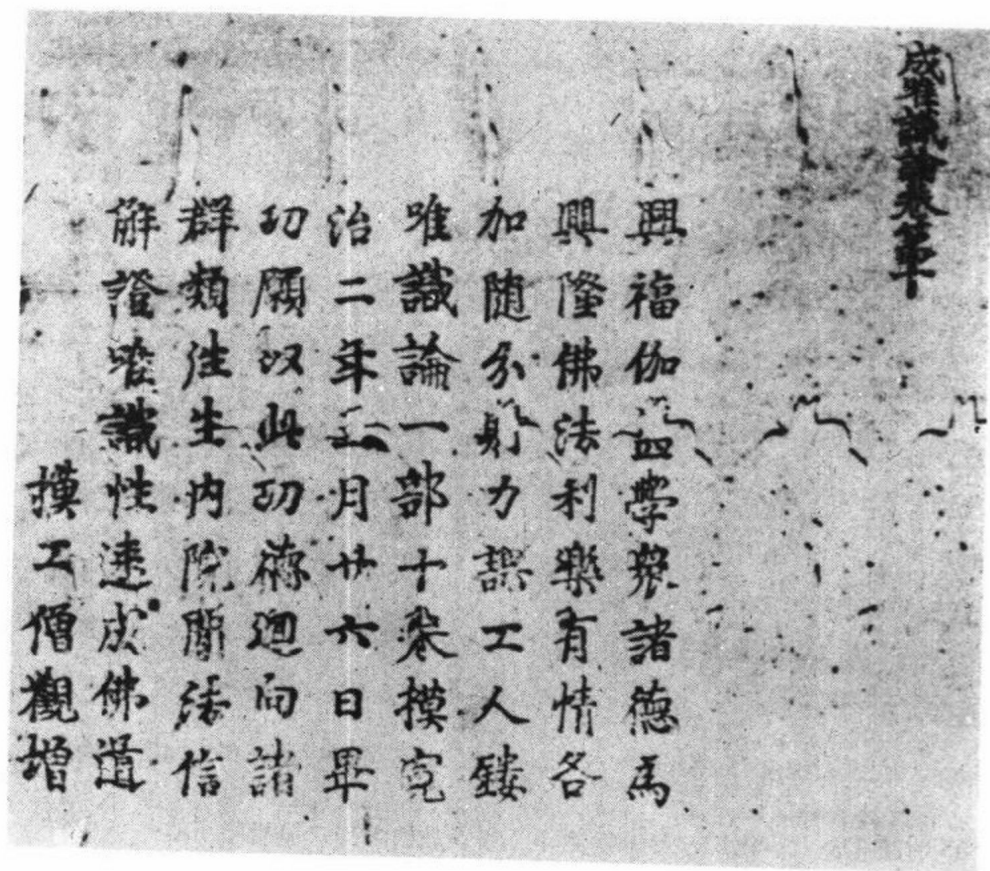 成唯識論卷第十
興福伽藍學衆諸德為
興隆佛法利樂有情各
加随分財力課工人鏤
唯識論一部十卷摸寛
治二年三月廿六日畢
功願以此功德迴向諸
群類往生内院聞法信
解證唯識性速成佛道
摸工僧觀增